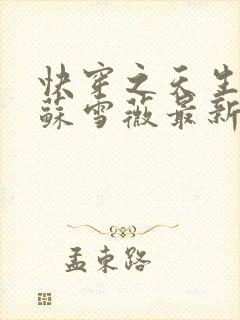 快穿之天生
蘇雪薇最新
孟束路